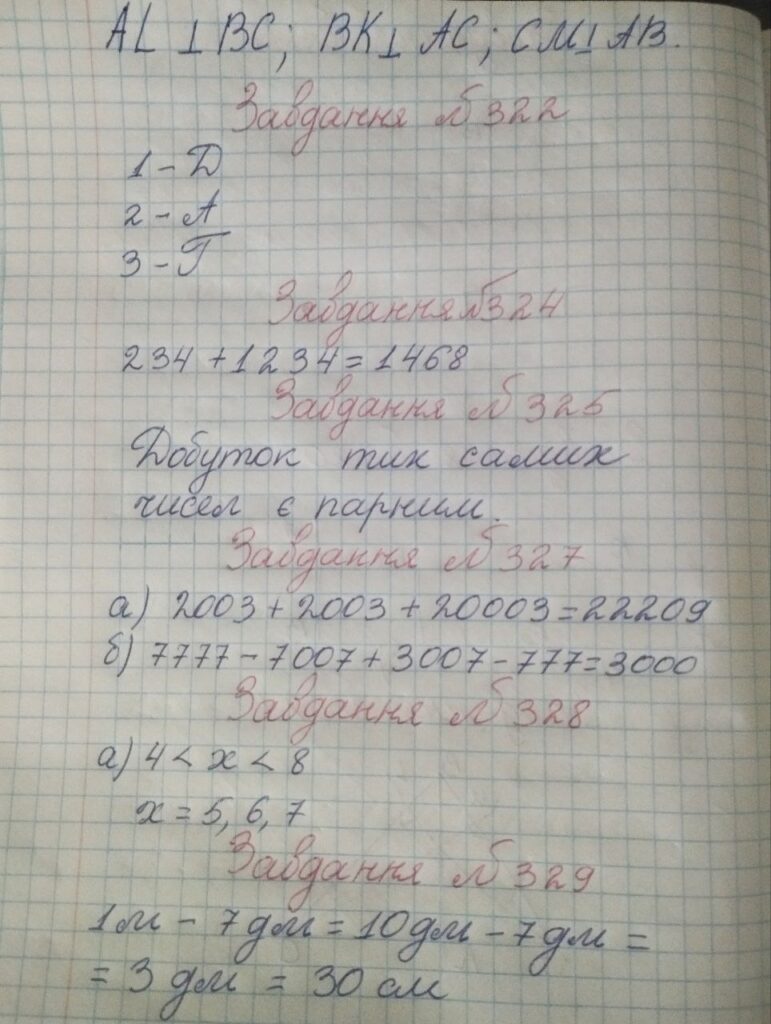 AL ⊥ BC; BK ⊥ AC; CM ⊥ AB.
Завдання №322
1 - Д
2 - А
3 - Г
Завдання №324
234 + 1234 = 1468
Завдання №325
Добуток тих самих
чисел є парним.
Завдання №327
а) 2003 + 2003 + 20003 = 22209
б) 7777 - 7007 + 3007 - 777 = 3000
Завдання №328
а) 4 < x < 8
x = 5, 6, 7
Завдання №329
1м - 7дм = 10дм - 7дм =
= 3 дм = 30 см